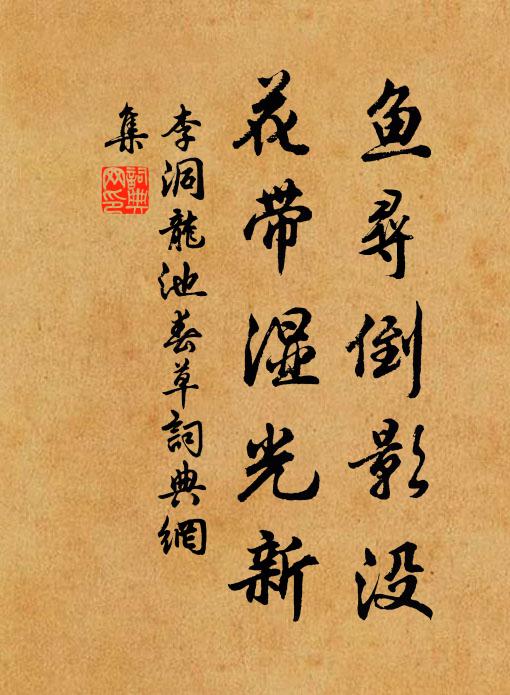 鱼尋倒影没
花带湿光新
李洞龍池春草詞典網
集
詞典网印